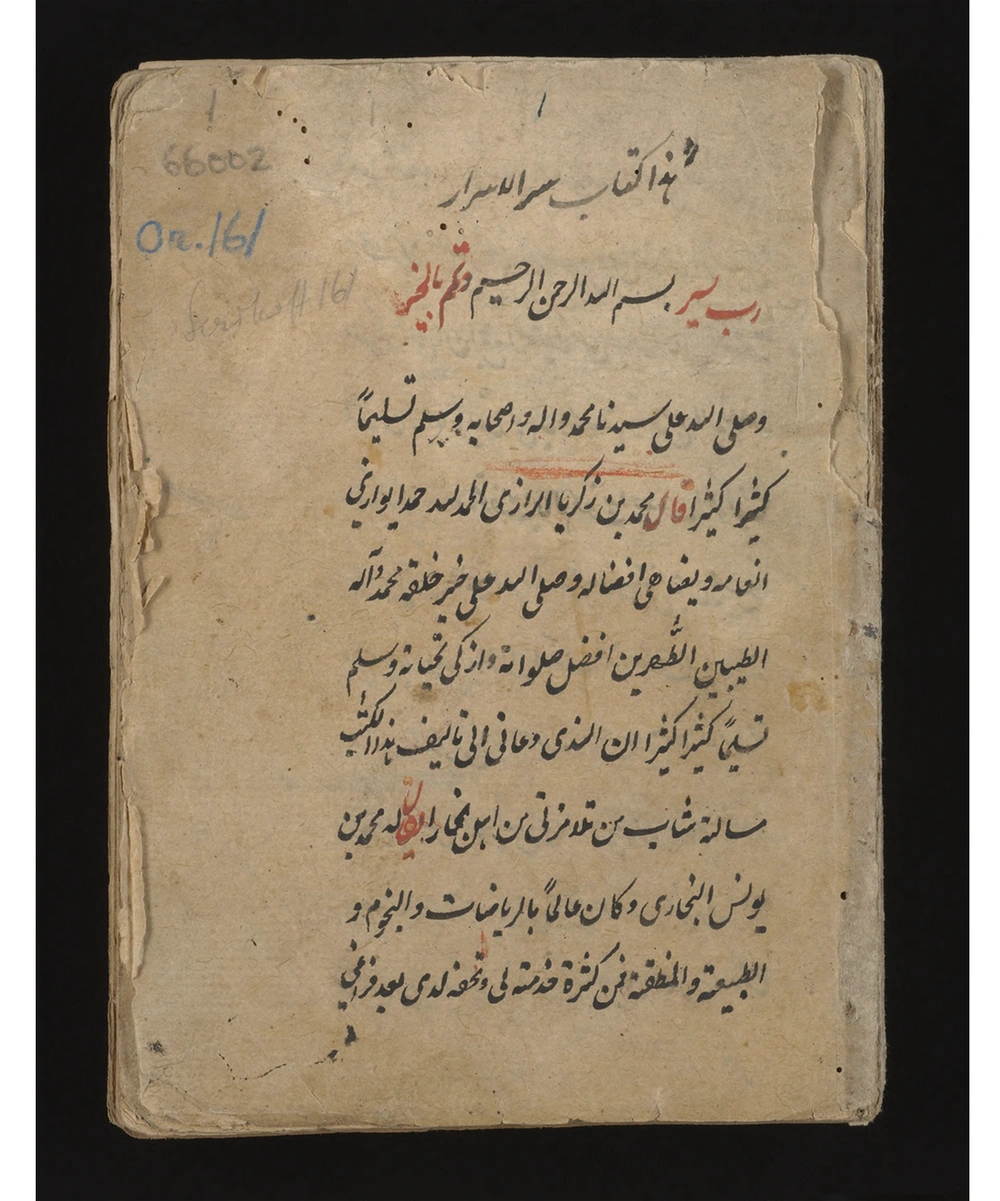 ١ ١ ١
66002
Or. 161
هذا كتاب سر الاسرار
رب يسر بسم الله الرحمن الرحيم وتمم بالخير
وصلى الله على سيدنا محمد واله واصحابه وسلم تسليماً
كثيرا كثيرا قال محمد بن زكريا الرازى الحمد لله حمدا يوازى
انعامه ويضاهى افضاله وصلى الله على خير خلقه محمد وآله
الطيبين الطهرين افضل صلواته وازكى تحياته وسلم
تسليماً كثيرا كثيرا ان الذى دعانى الى تاليف هذا الكتب
مسالة شاب من تلامذتى من اهل بخارا يقال له محمد بن
يونس البخارى وكان عالماً بالرياضات والنجوم و
الطبيعة والمنطقة فمن كثرة خدمته لى لدى بعد فراغى